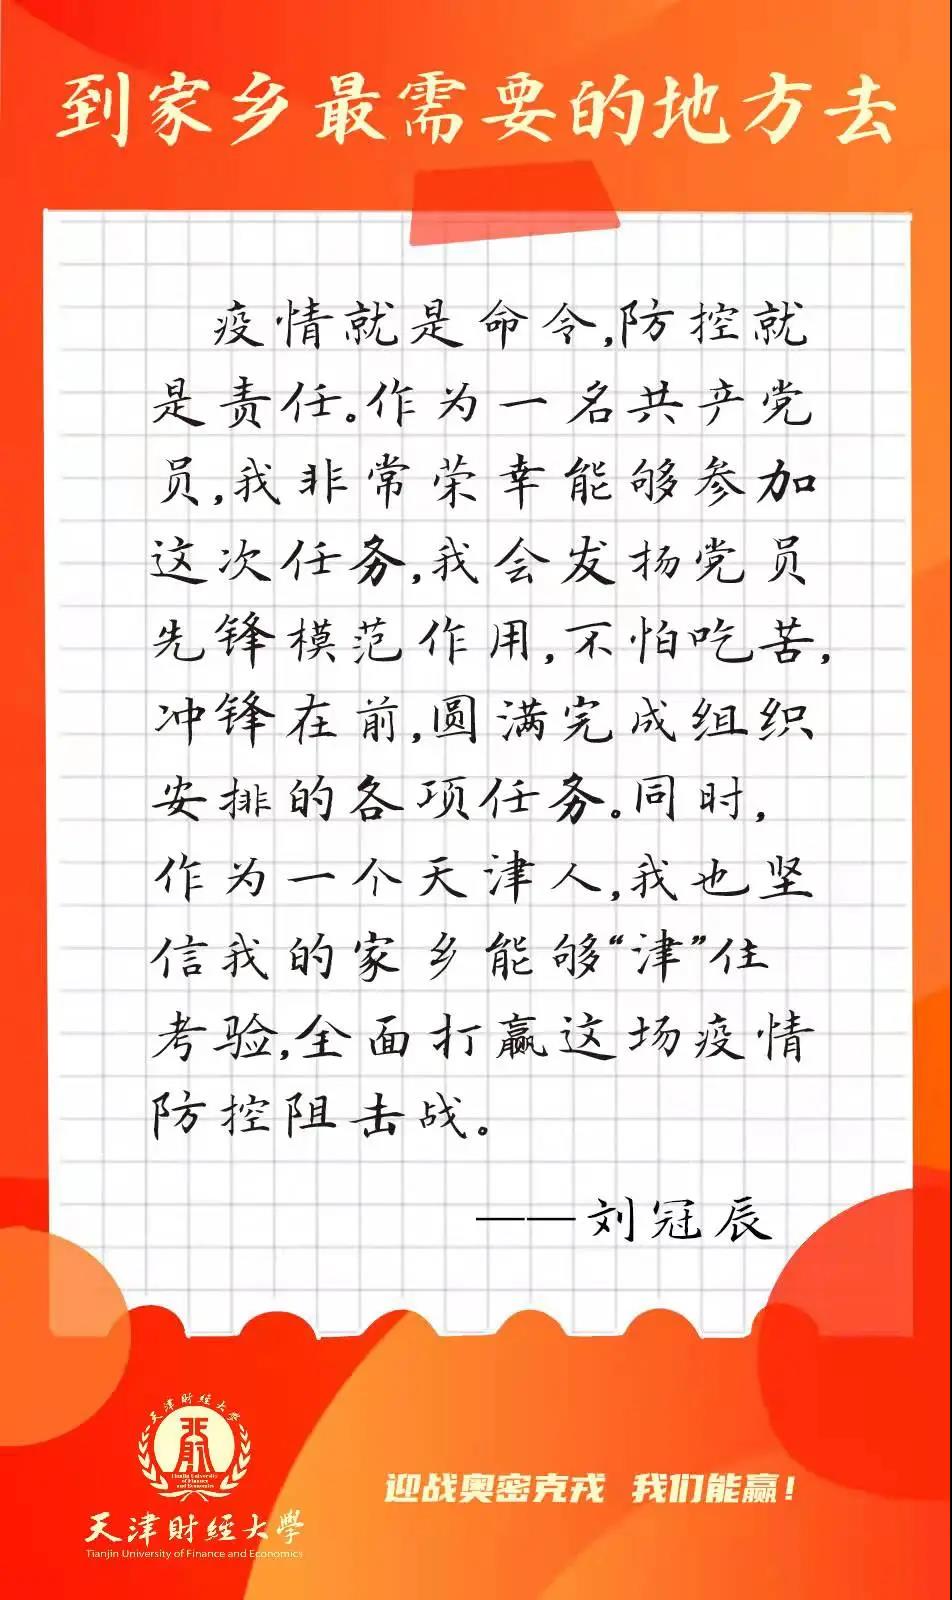 到家乡最需要的地方去
疫情就是命令,防控就
是责任。作为一名共产党
员,我非常荣幸能够参加
这次任务,我会发扬党员
先锋模范作用,不怕吃苦,
冲锋在前,圆满完成组织
安排的各项任务。同时,
作为一个天津人,我也坚
信我的家乡能够“津”住
考验,全面打赢这场疫情
防控阻击战。
——刘冠辰
天津财经大学
Tianjin University
of Finance
and Economics
天津财经大学
Tianjin University of Finance and Economics
迎战奥密克戎 我们能赢!